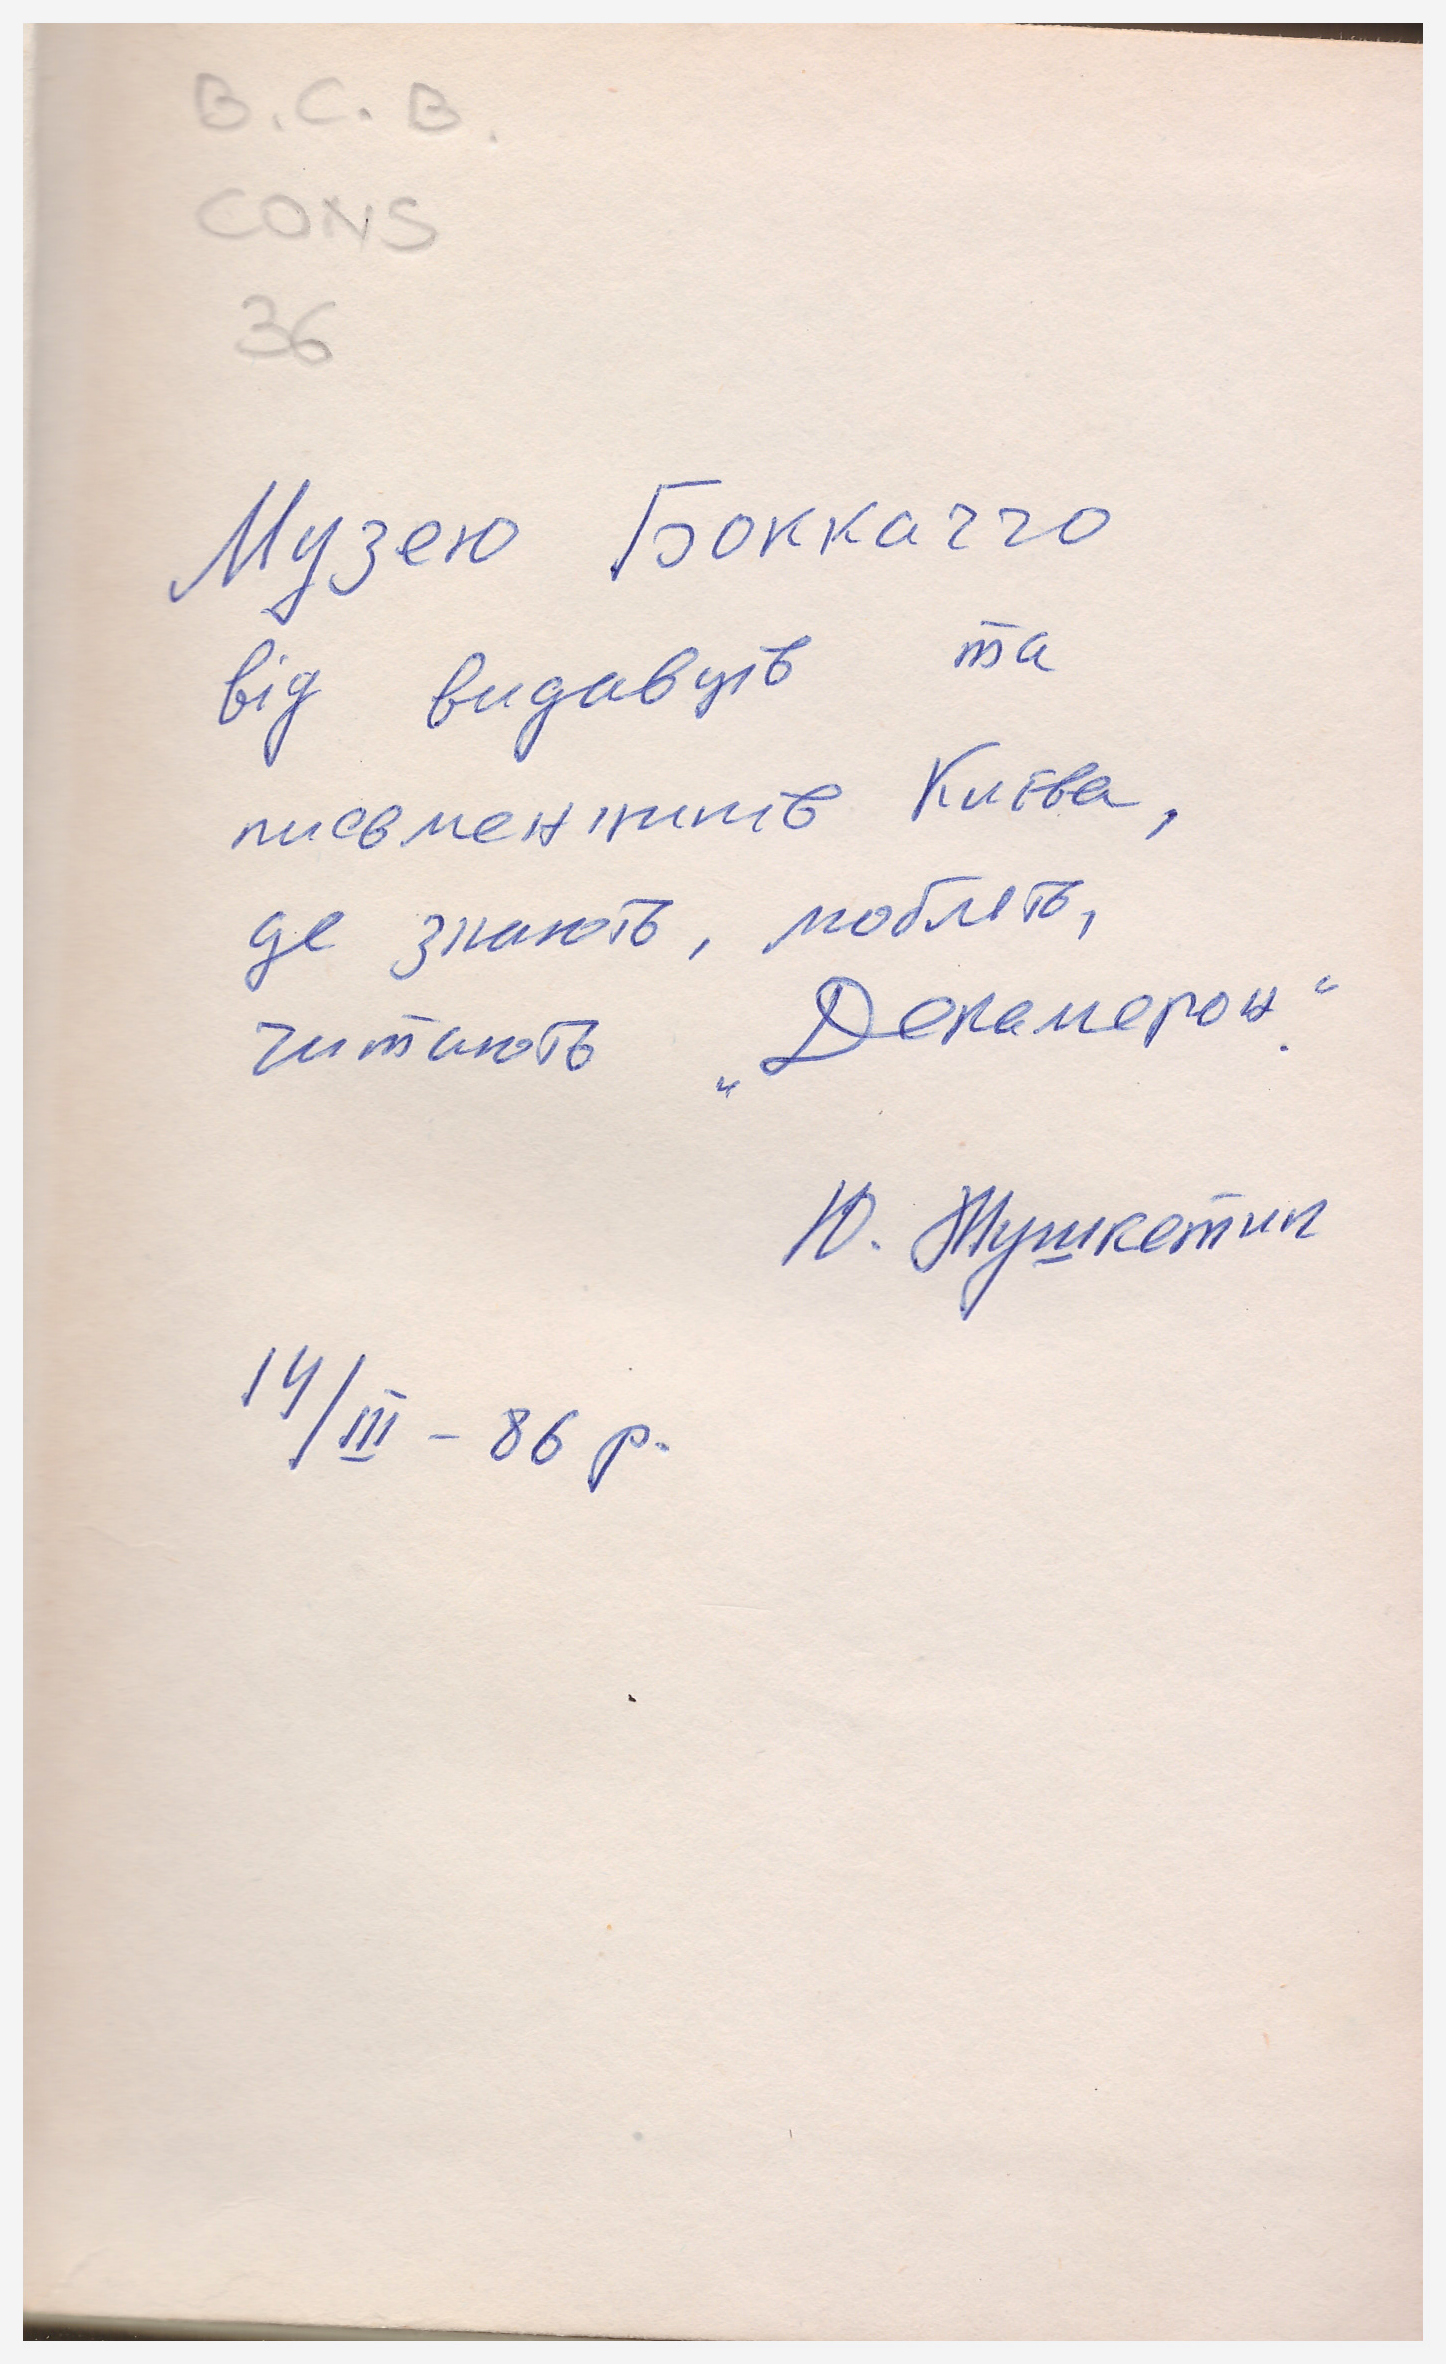 B.C.B.
CONS
36
Музею Боккаччо
від видавців та
письменників Києва,
де знають, люблять,
читають „Декамерон“.
Ю. Мушкетик
14/III – 86 р.